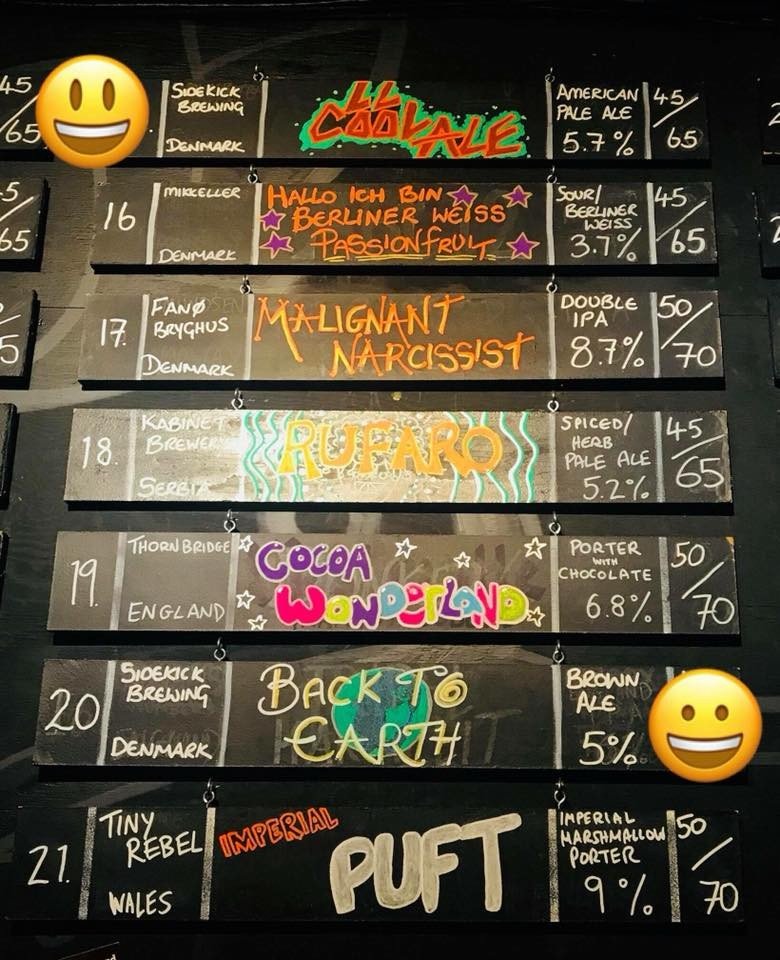 45/65
SIDEKICK
BREWING
DENMARK
LL
COOL ALE
AMERICAN
PALE ALE
5.7%
45/65
5/65
16
MIKKELLER
DENMARK
HALLO ICH BIN
BERLINER WEISS
PASSIONFRUIT
SOUR/
BERLINER
WEISS
3.7%
45/65
5
17.
FANØ
BRYGHUS
DENMARK
MALIGNANT
NARCISSIST
DOUBLE
IPA
8.7%
50/70
18.
KABINET
BREWERY
SERBIA
RUFARO
SPICED/
HERB
PALE ALE
5.2%
45/65
19.
THORNBRIDGE
ENGLAND
COCOA
WONDERLAND
PORTER
WITH
CHOCOLATE
6.8%
50/70
20
SIDEKICK
BREWING
DENMARK
BACK TO
EARTH
BROWN
ALE
5%
21.
TINY
REBEL
WALES
IMPERIAL
PUFT
IMPERIAL
MARSHMALLOW
PORTER
9%
50/70